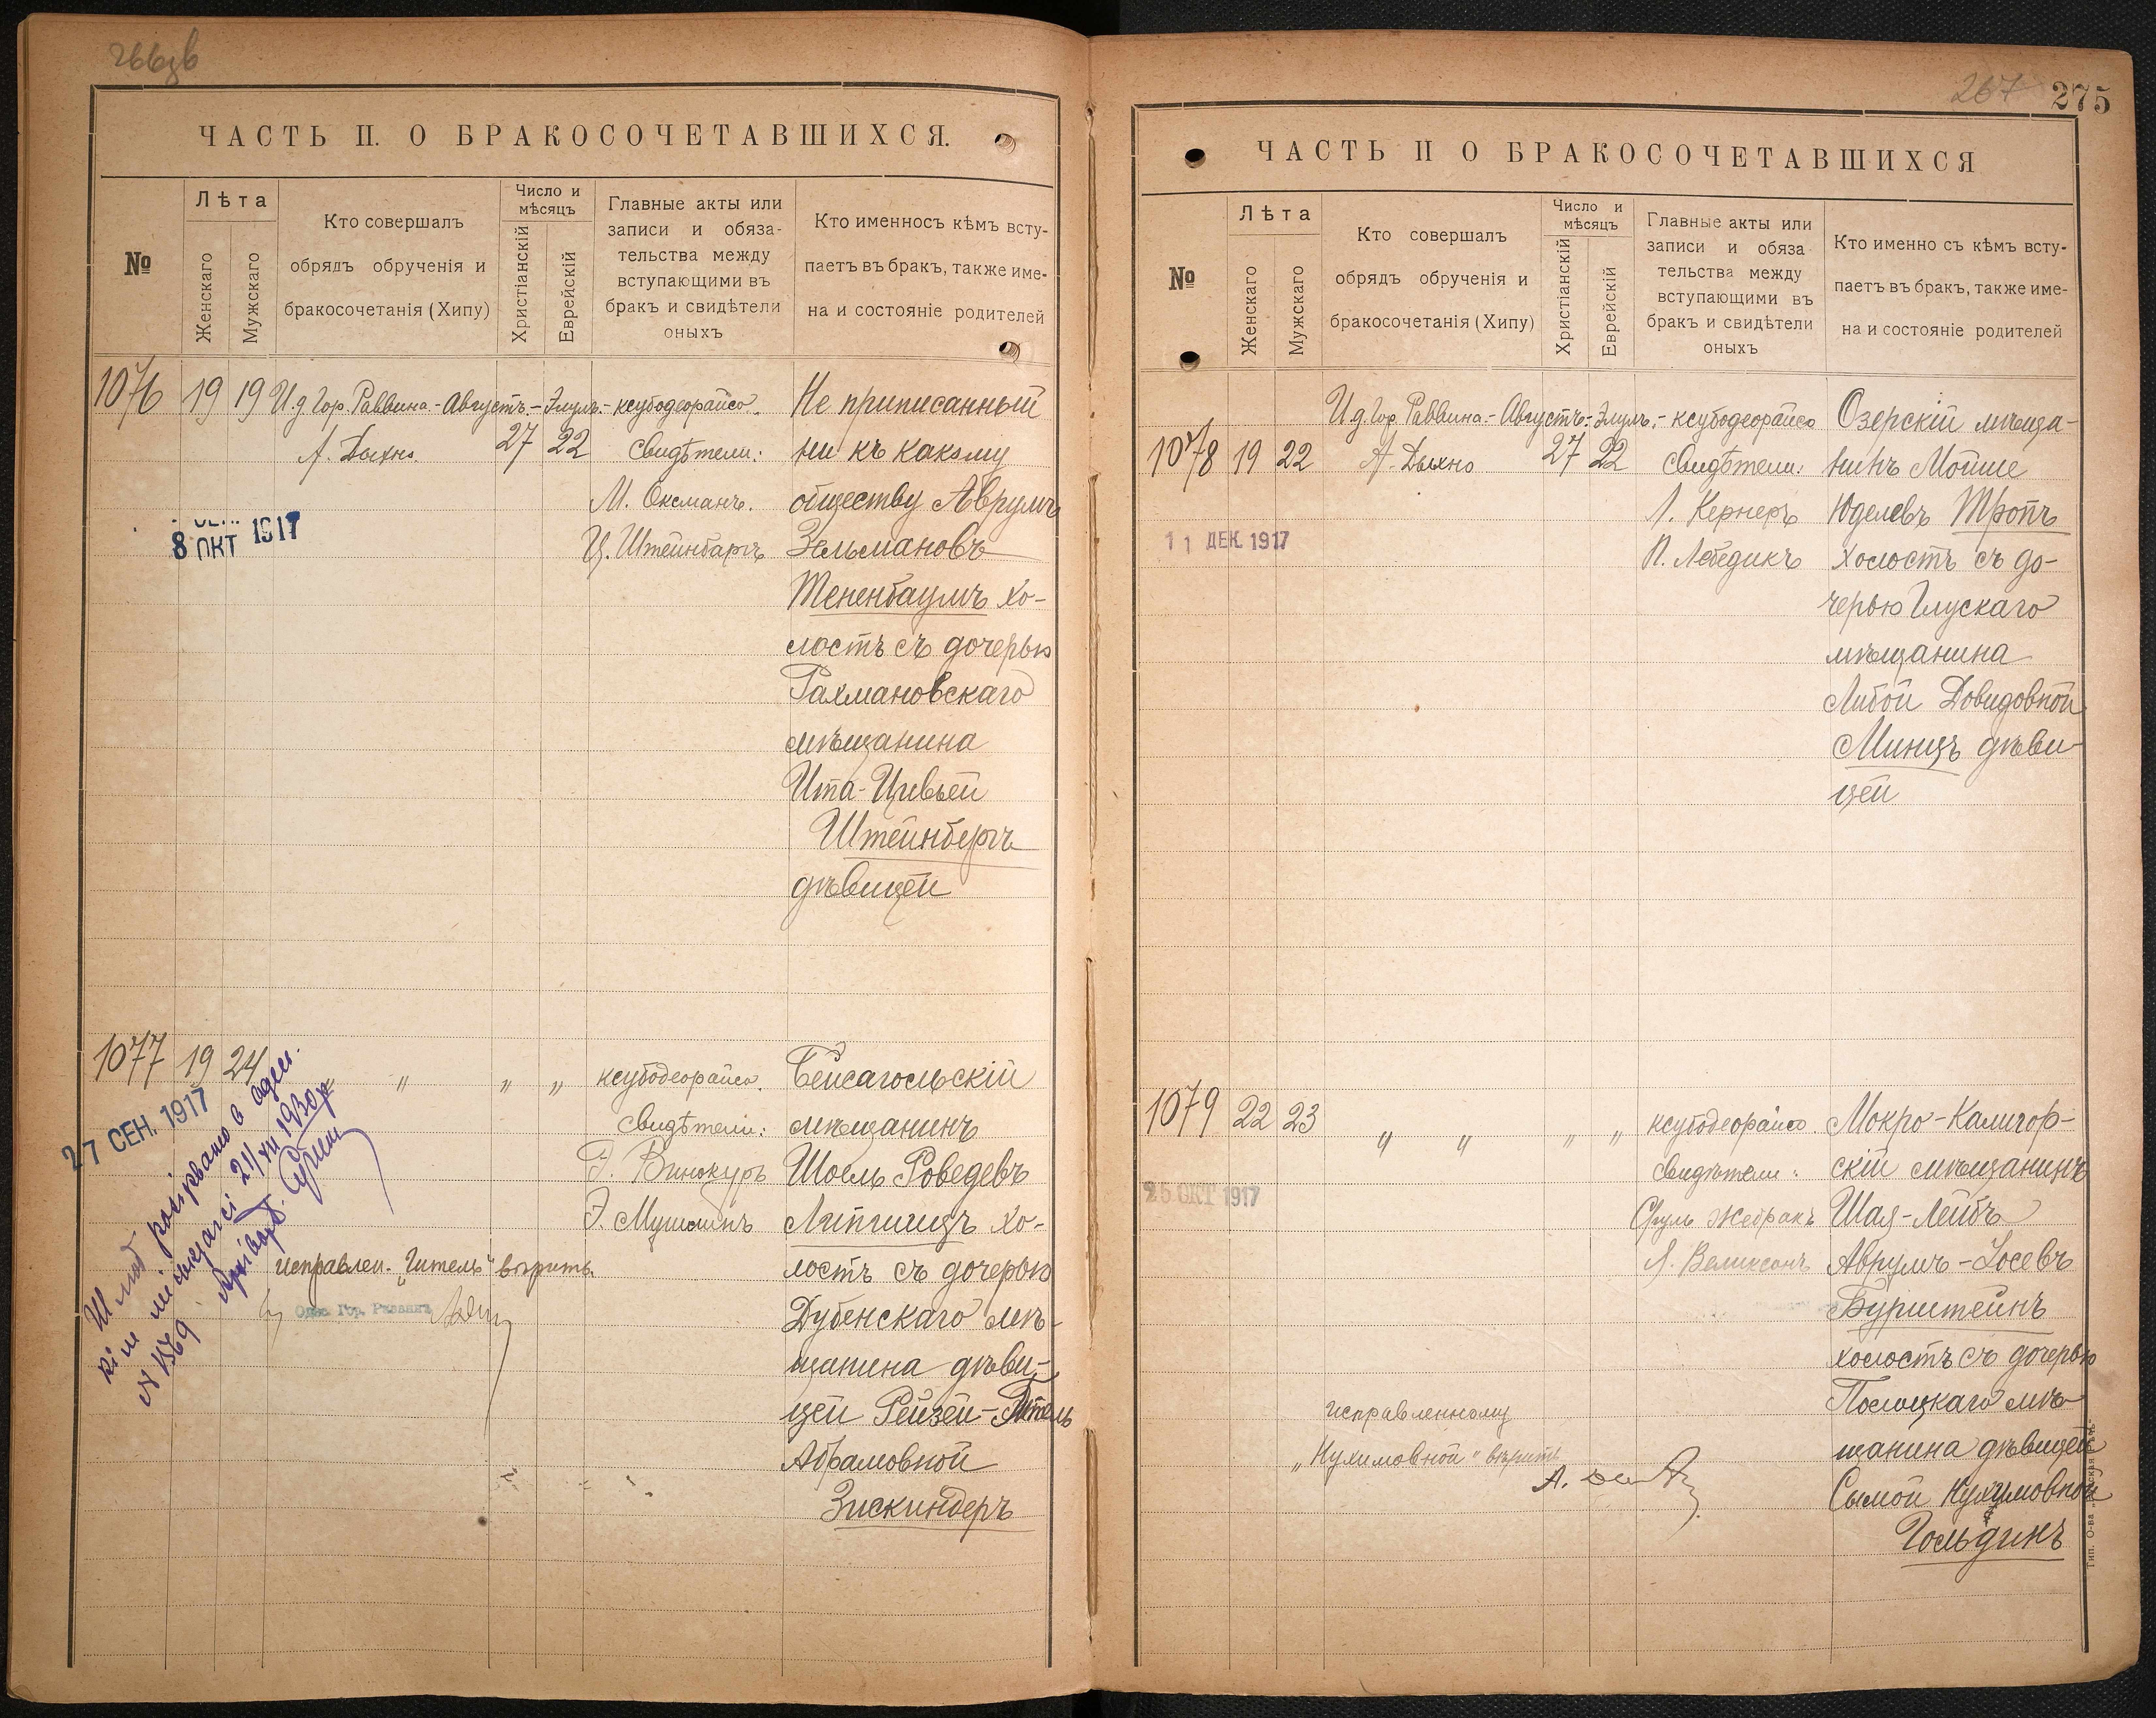 ЧАСТЬ II. О БРАКОСОЧЕТАВШИХСЯ.
№
Лѣта
Женскаго
Мужскаго
Кто совершалъ
обрядъ обрученія и
бракосочетанія (Хипу)
Число и
мѣсяцъ
Христіанскій
Еврейскій
Главные акты или
записи и обяза-
тельства между
вступающими въ
бракъ и свидѣтели
оныхъ
Кто именносъ кѣмъ всту-
паетъ въ бракъ, также име-
на и состояніе родителей
1076
19
19
И.д Гор. Раввина.-
А. Дыхно.
Августъ.-
27
Элулъ.-
22
ксубодеорайсо.
Свидѣтели:
М. Оксманъ.
Ц. Штейнбаргъ
Не приписанный
ни къ какому
обществу Аврумъ
Зельмановъ
Тененбаумъ хо-
лостъ съ дочерью
Рахмановскаго
мѣщанина
Ита-Цивьей
Штейнбергъ
дѣвицей
8 ОКТ 1917
1077
19
24
" " "
ксубодеорайсо.
Свидѣтели:
Э. Винокуръ
Бейсагольскій
мѣщанинъ
Шоель Роведевъ
Липшицъ хо-
лостъ съ дочерью
Дубенскаго мѣ-
щанина дѣви-
цей Рейзей-Гитель
Абрамовной
Зискиндеръ
27 СЕН. 1917
исправлен. „Гитель" вѣрить.
Одес. Гор. Раввинъ
267 275
ЧАСТЬ II О БРАКОСОЧЕТАВШИХСЯ
№
Лѣта
Женскаго
Мужскаго
Кто совершалъ
обрядъ обрученія и
бракосочетанія (Хипу)
Число и
мѣсяцъ
Христіанскій
Еврейскій
Главные акты или
записи и обяза
тельства между
вступающими въ
бракъ и свидѣтели
оныхъ
Кто именно съ кѣмъ всту-
паетъ въ бракъ, также име-
на и состояніе родителей
1078
19
22
И.д Гор. Раввина.-
А. Дыхно
Августъ.-
27
Элулъ.-
22
ксубодеорайсо
Свидѣтели:
Л. Кернеръ
П. Лебедикъ
Озерскій мѣща-
нинъ Мойше
Юделевъ Тропъ
холостъ съ до-
черью Глускаго
мѣщанина
Либой Довидовной
Минцъ дѣви-
цей
11 ДЕК. 1917
1079
22
23
" " " "
ксубодеорайсо.
Свидѣтели:
Сруль Жебракъ
Мокро-Калигор-
скій мѣщанинъ
Шая-Лейбъ
Аврумъ-Іосевъ
Бурштейнъ
холостъ съ дочерью
Полоцкаго мѣ-
щанина дѣвицей
Сымой Нухимовной
Гольдинъ
25 ОКТ 1917
исправленному
„Нухимовной" вѣрить